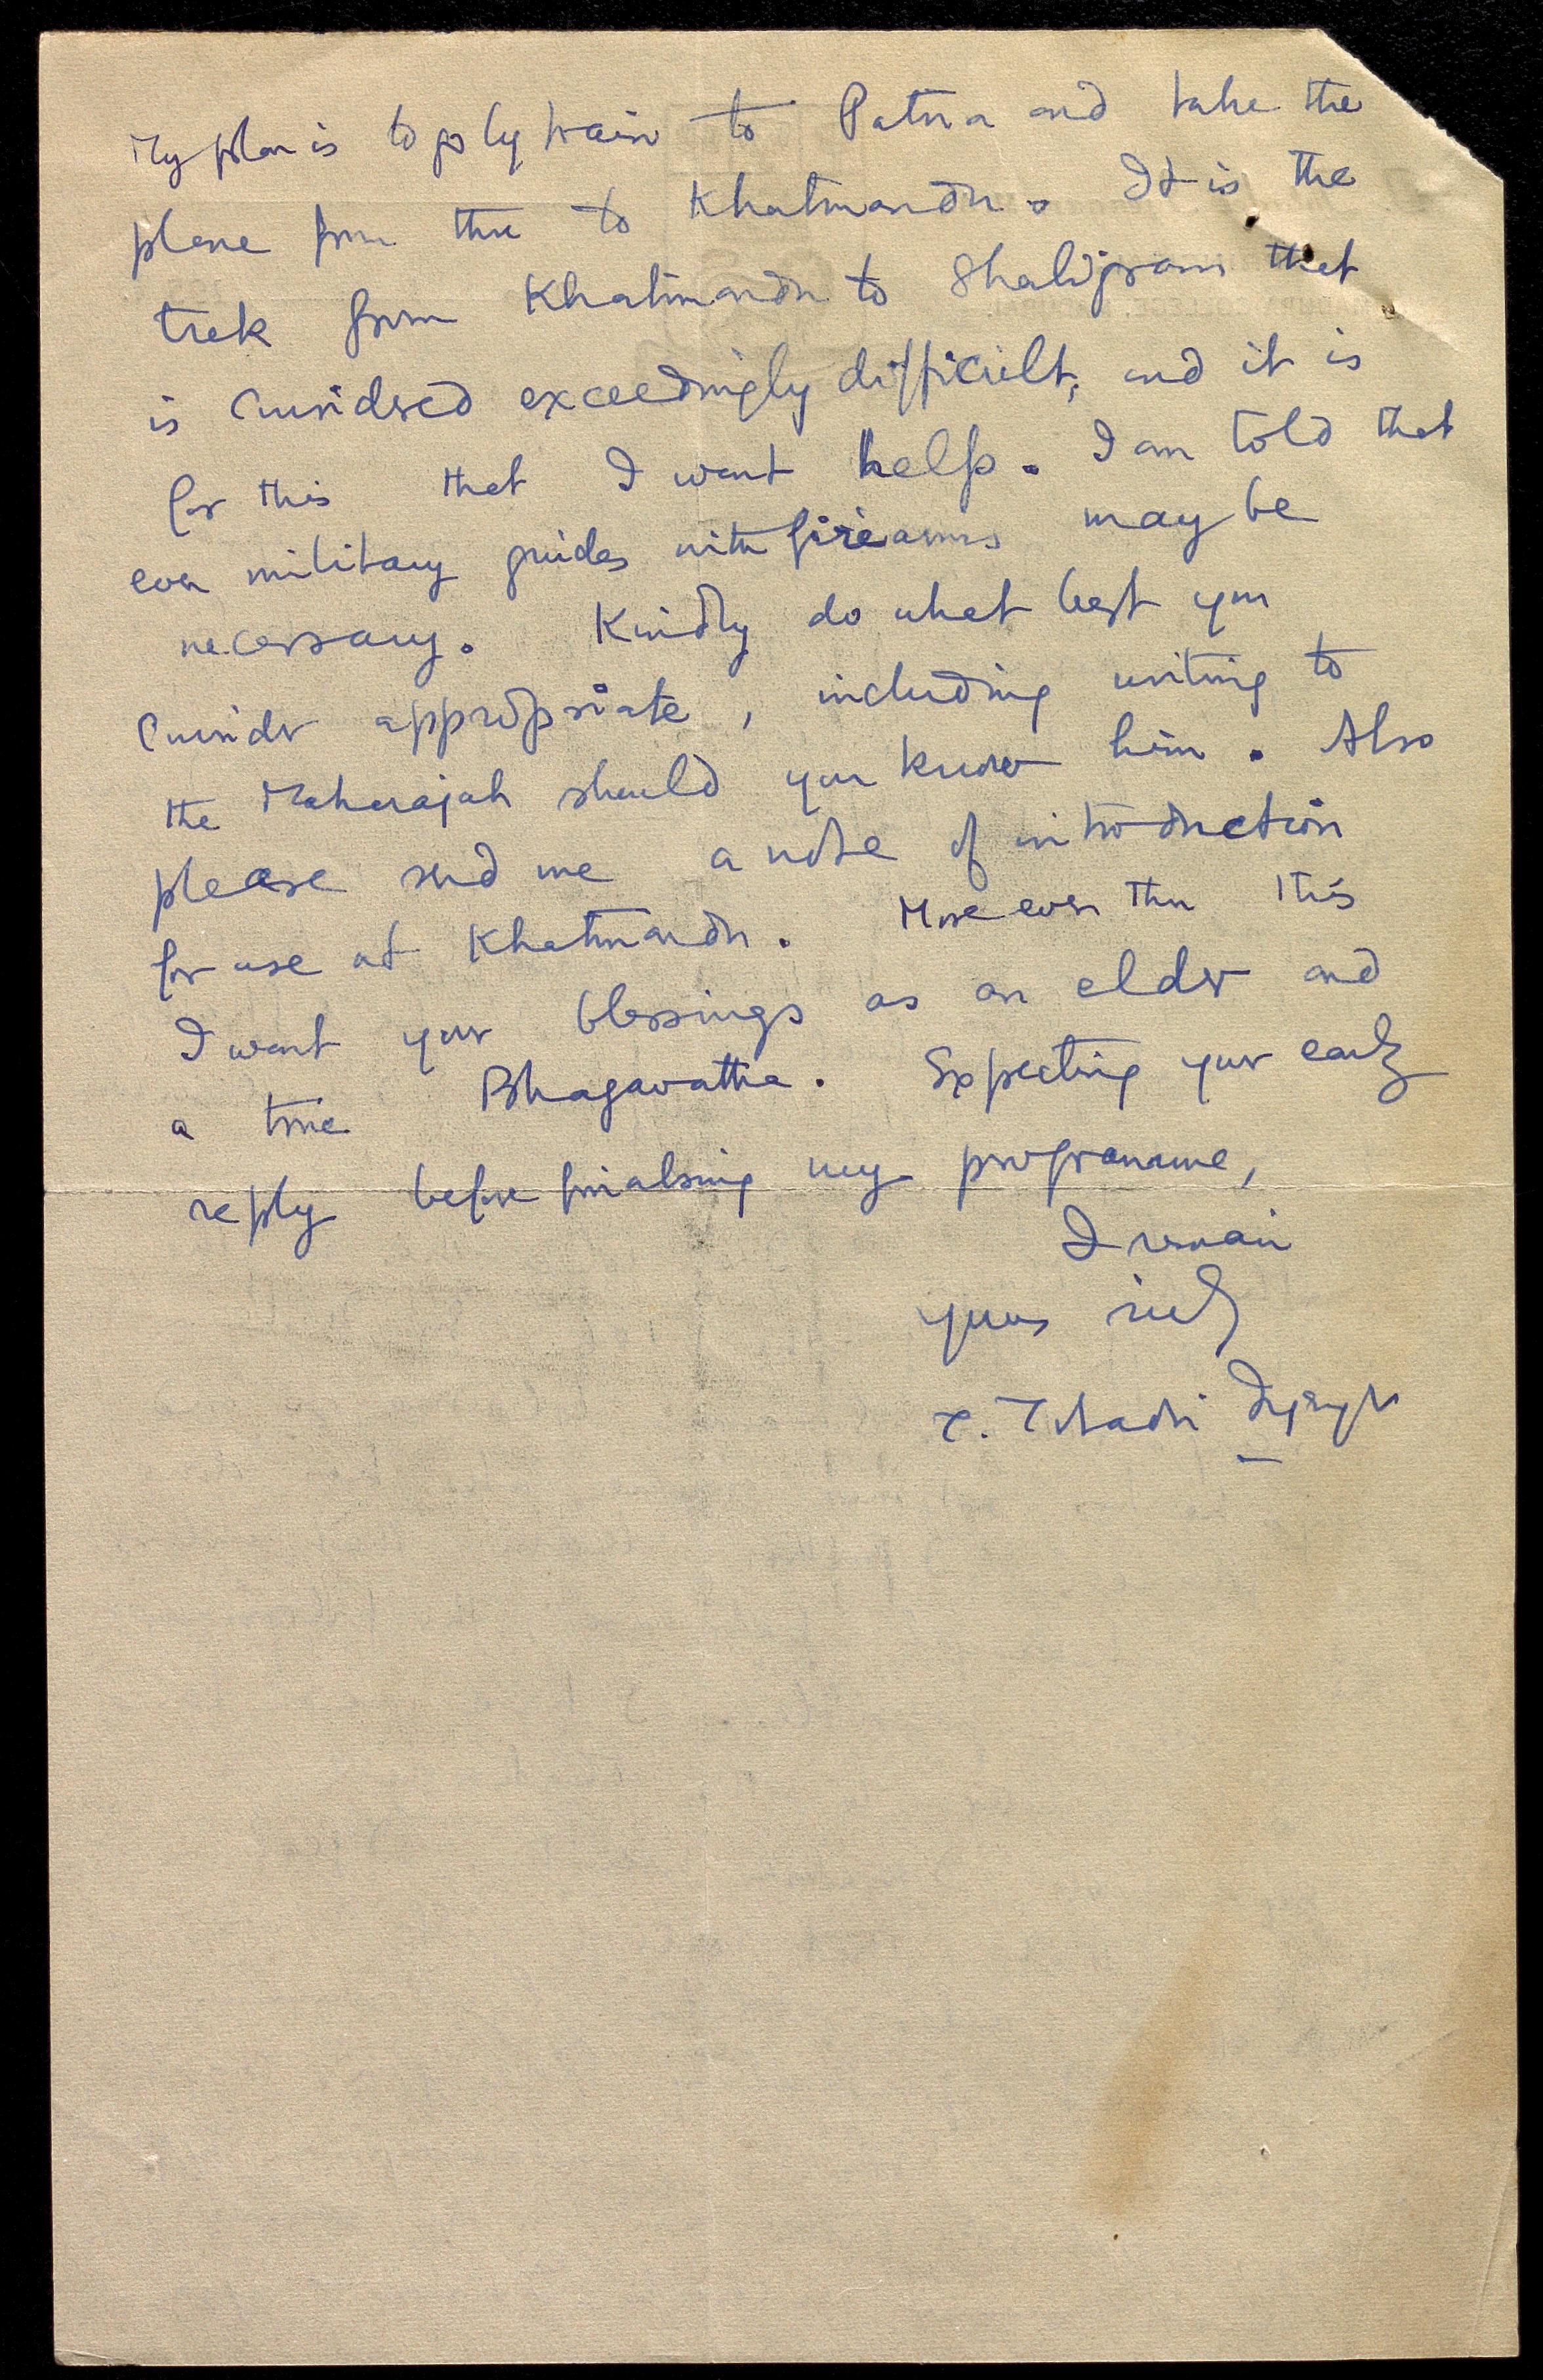 My plan is to go by train to Patna and take the
plane from there to Khatmandu. It is the
trek from Khatmandu to Shaligram that
is considered exceedingly difficult, and it is
for this that I want help. I am told that
even military guides with firearms may be
necessary. Kindly do what best you
consider appropriate, including writing to
the Maharajah should you know him. Also
please send me a note of introduction
for use at Khatmandu. More even than this
I want your blessings as an elder and
a true Bhagavatha. Expecting your early
reply before finalising my programme,
I remain
yours